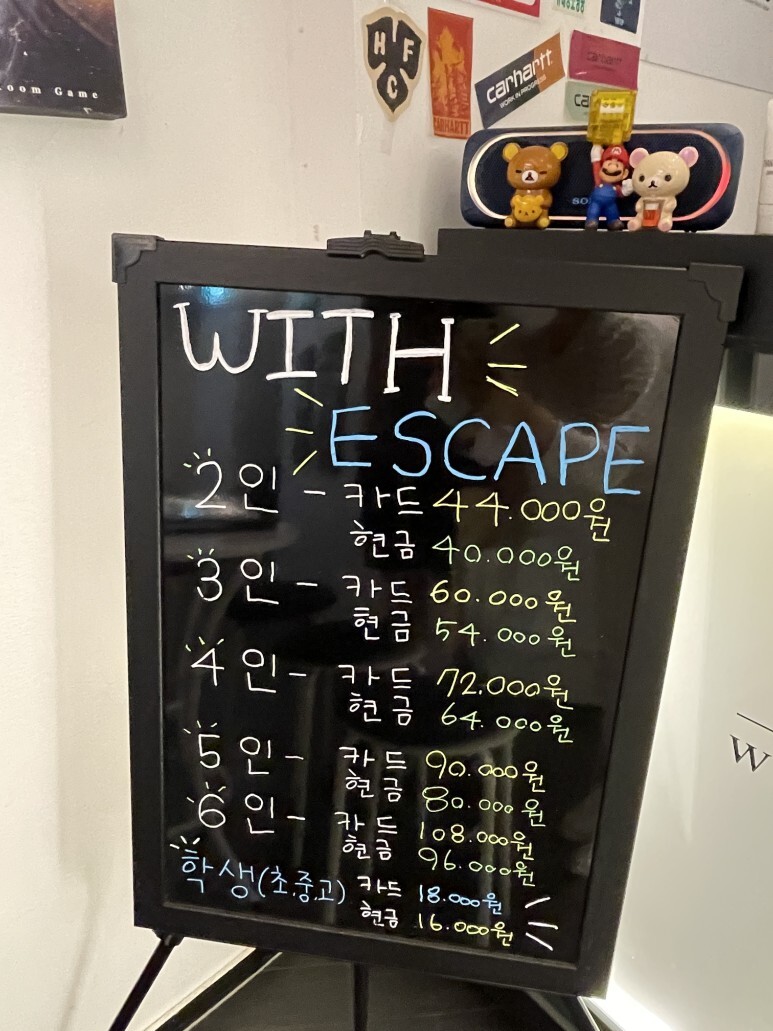 room Game
H F C
CARHARTT
carhartt
WORK IN PROGRESS
carhartt
ca
SO
WITH
ESCAPE
2인 - 카드 44.000원
현금 40.000원
3인 - 카드 60.000원
현금 54.000원
4인 - 카드 72.000원
현금 64.000원
5인 - 카드 90.000원
현금 80.000원
6인 - 카드 108.000원
현금 96.000원
학생(초,중,고) 카드 18.000원
현금 16.000원
W